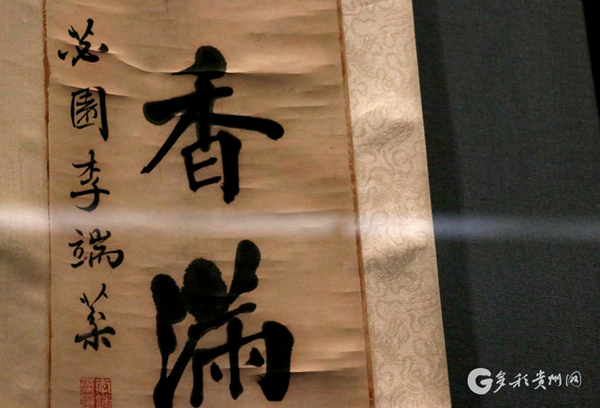 香滿
苾園李端棻
多彩贵州网